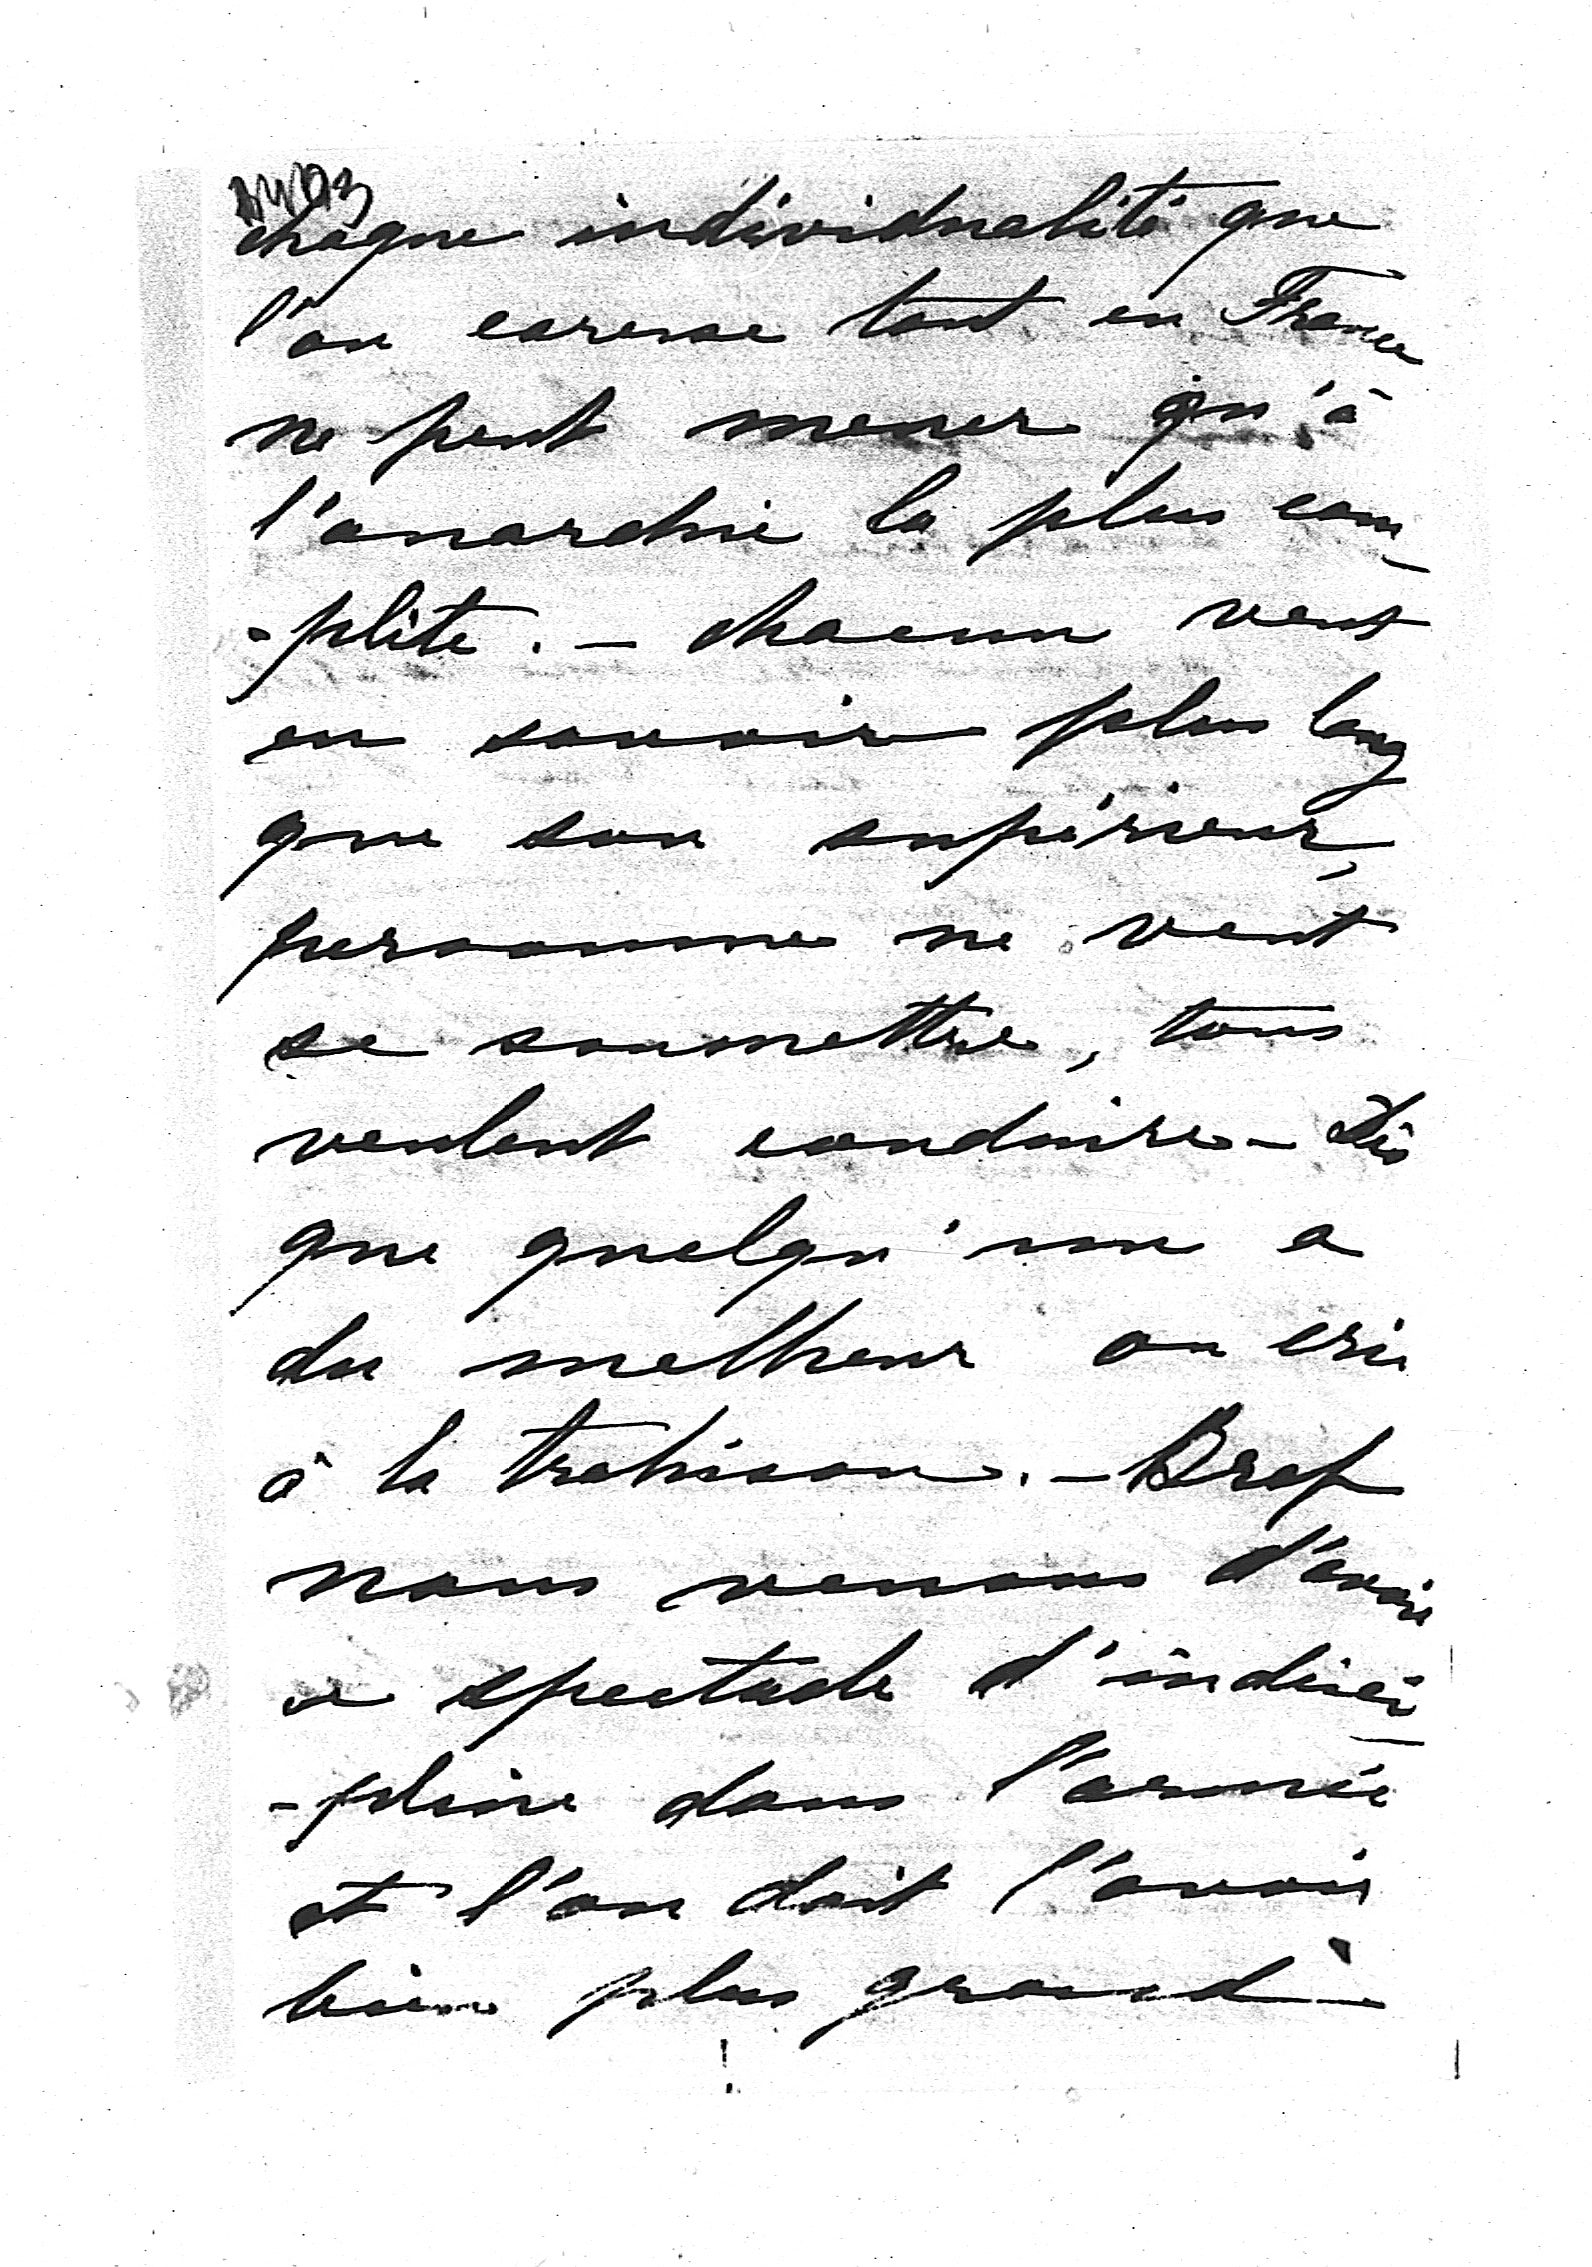 chaque individualité que
l'on caresse tant en France
ne peut mener qu'à
l'anarchie la plus com-
-plète. - chacun veut
en savoir plus long
que son supérieur,
personne ne veut
se soumettre, tous
veulent conduire - Dès
que quelqu'un a
du malheur on crie
à la trahison. - Bref
nous venons d'avoir
ce spectacle d'indisci-
-pline dans l'armée
et l'on doit l'avoir
bien plus grand